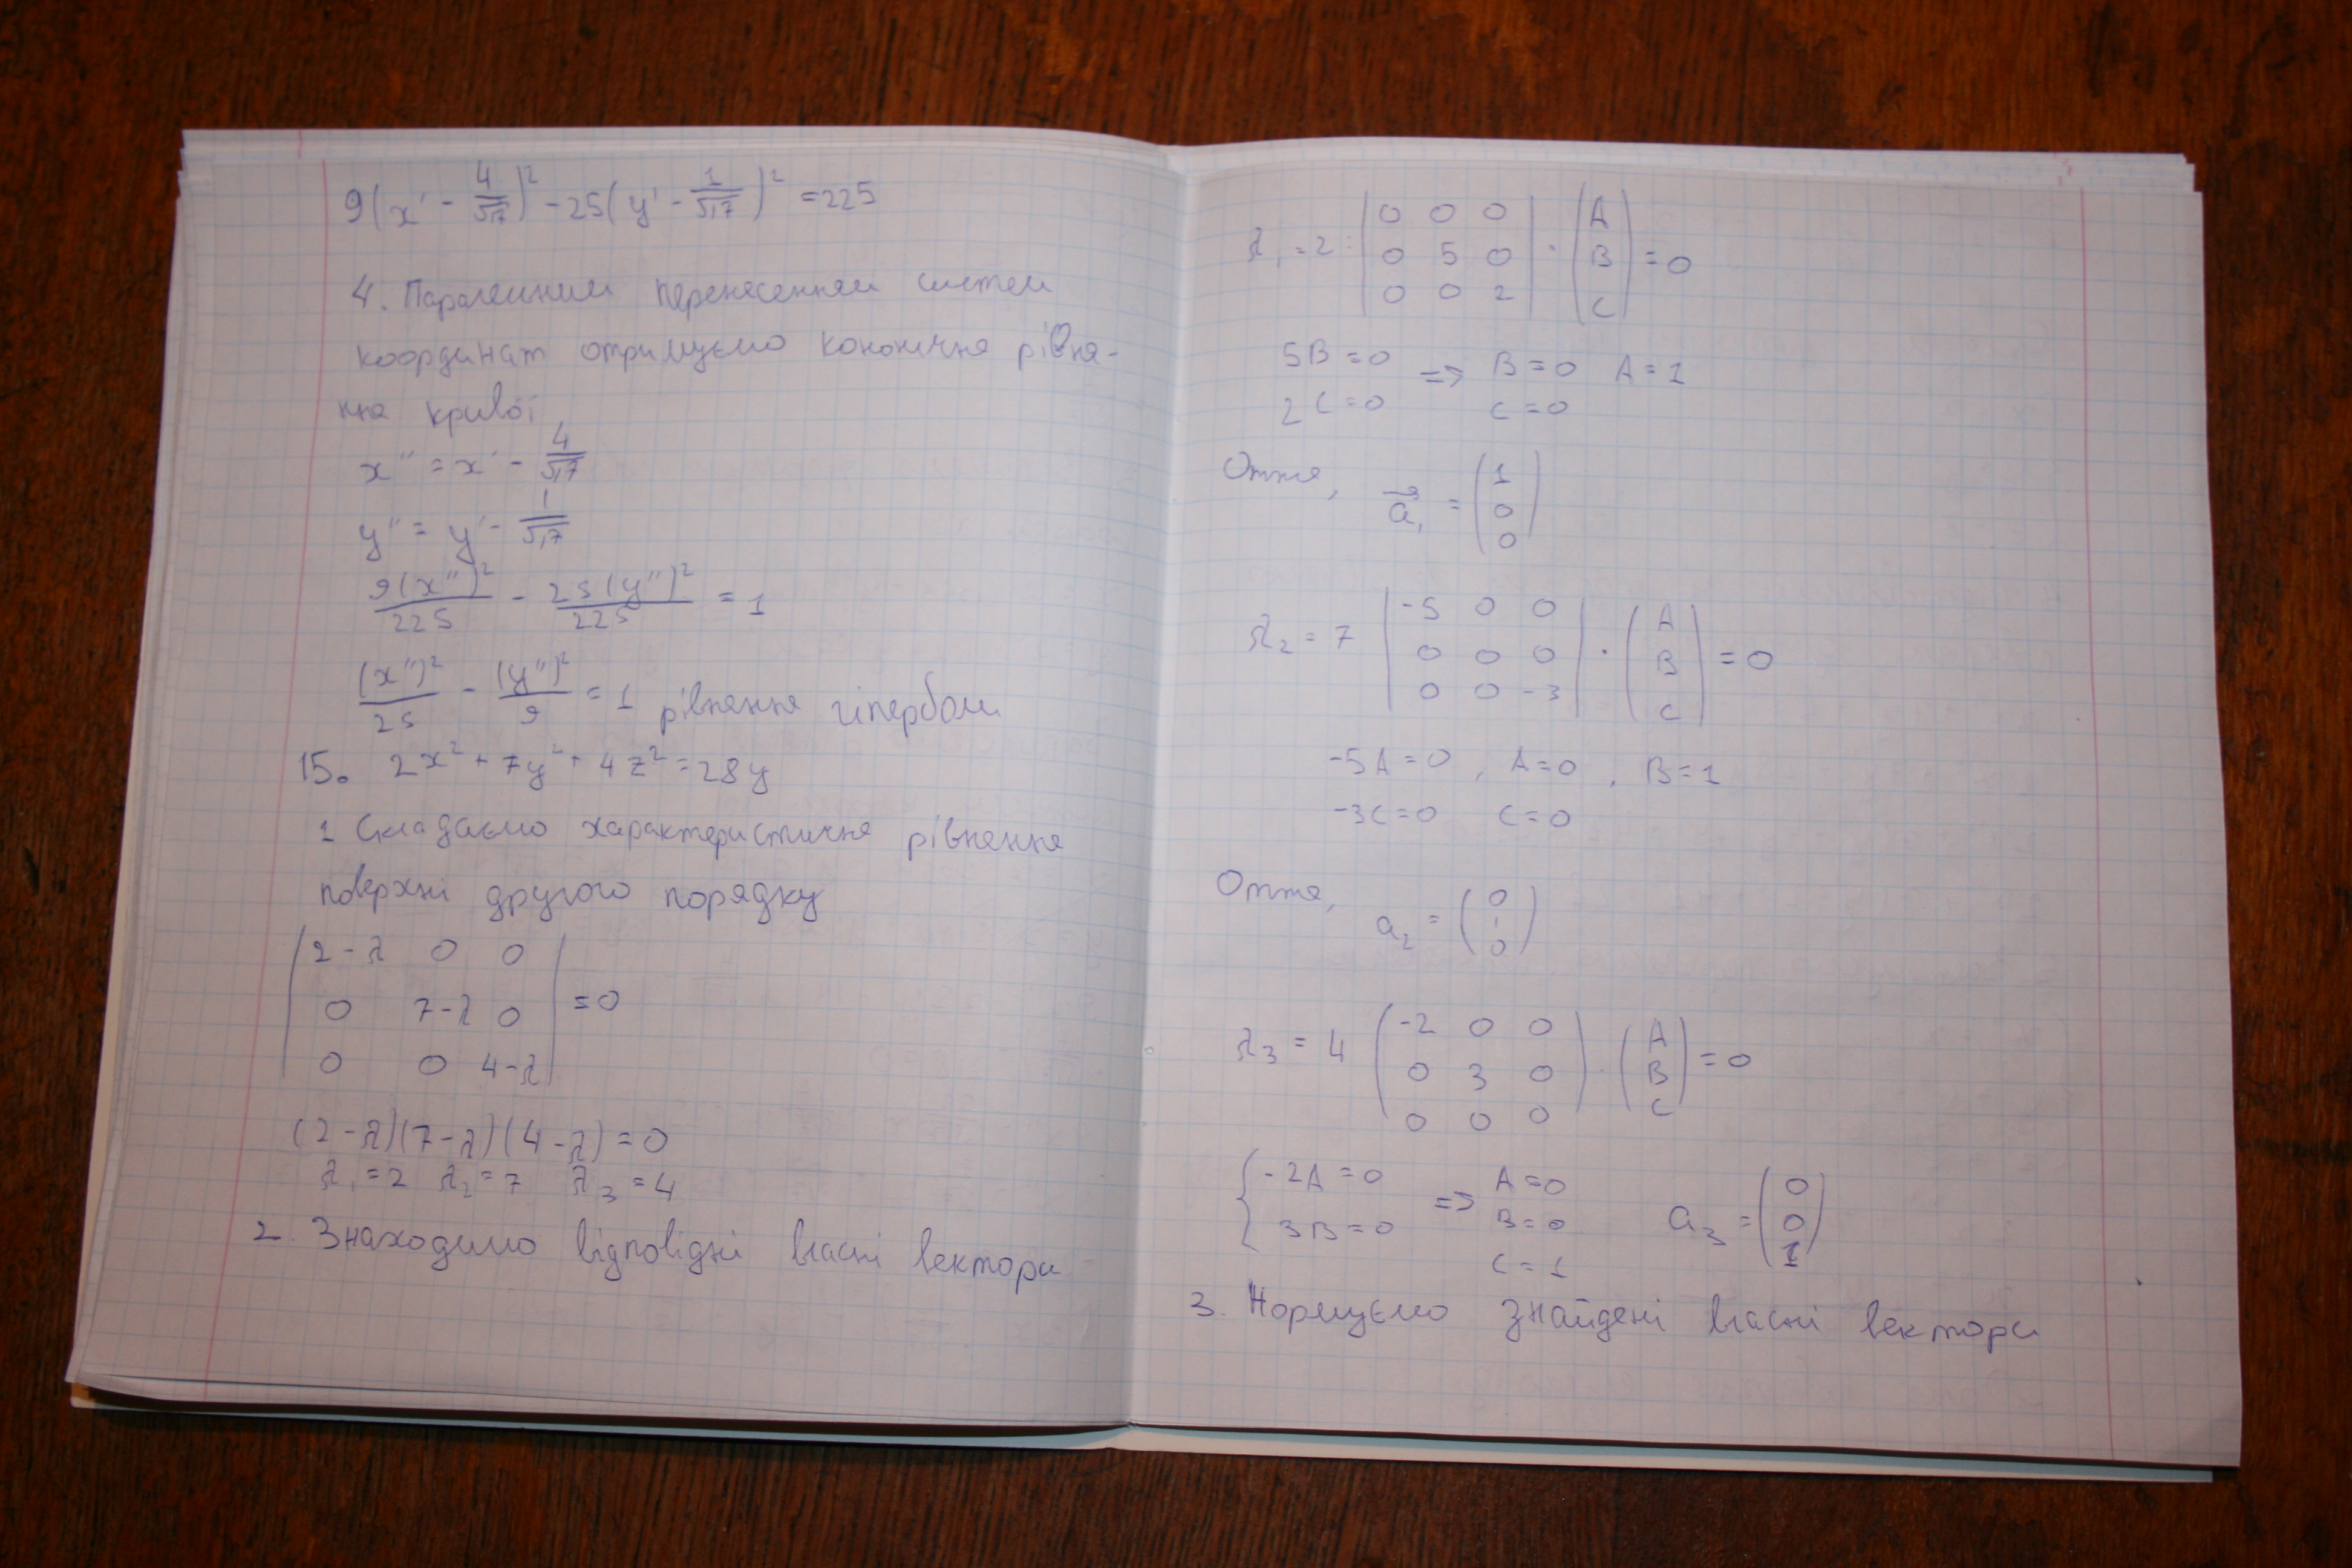 9(x' - 4/√17)² - 25(y' - 1/√17)² = 225
4. Паралельним перенесенням систем
координат отримуємо канонічне рівня-
ння кривої
x'' = x' - 4/√17
y'' = y' - 1/√17
9(x'')²/225 - 25(y'')²/225 = 1
(x'')²/25 - (y'')²/9 = 1 рівняння гіперболи
15. 2x² + 7y² + 4z² = 28y
1 Складаємо характеристичне рівняння
поверхні другого порядку
|2-λ 0 0|
|0 7-λ 0| = 0
|0 0 4-λ|
(2-λ)(7-λ)(4-λ) = 0
λ₁ = 2 λ₂ = 7 λ₃ = 4
2. Знаходимо відповідні власні вектори
λ₁ = 2: |0 0 0; 0 5 0; 0 0 2| · (A; B; C) = 0
5B = 0 => B = 0 A = 1
2C = 0 C = 0
Отже, a⃗₁ = (1; 0; 0)
λ₂ = 7 |-5 0 0; 0 0 0; 0 0 -3| · (A; B; C) = 0
-5A = 0, A = 0, B = 1
-3C = 0 C = 0
Отже, a₂ = (0; 1; 0)
λ₃ = 4 (-2 0 0; 0 3 0; 0 0 0) · (A; B; C) = 0
{-2A = 0 => A = 0
3B = 0 B = 0
C = 1
a₃ = (0; 0; 1)
3. Нормуємо знайдені власні вектори